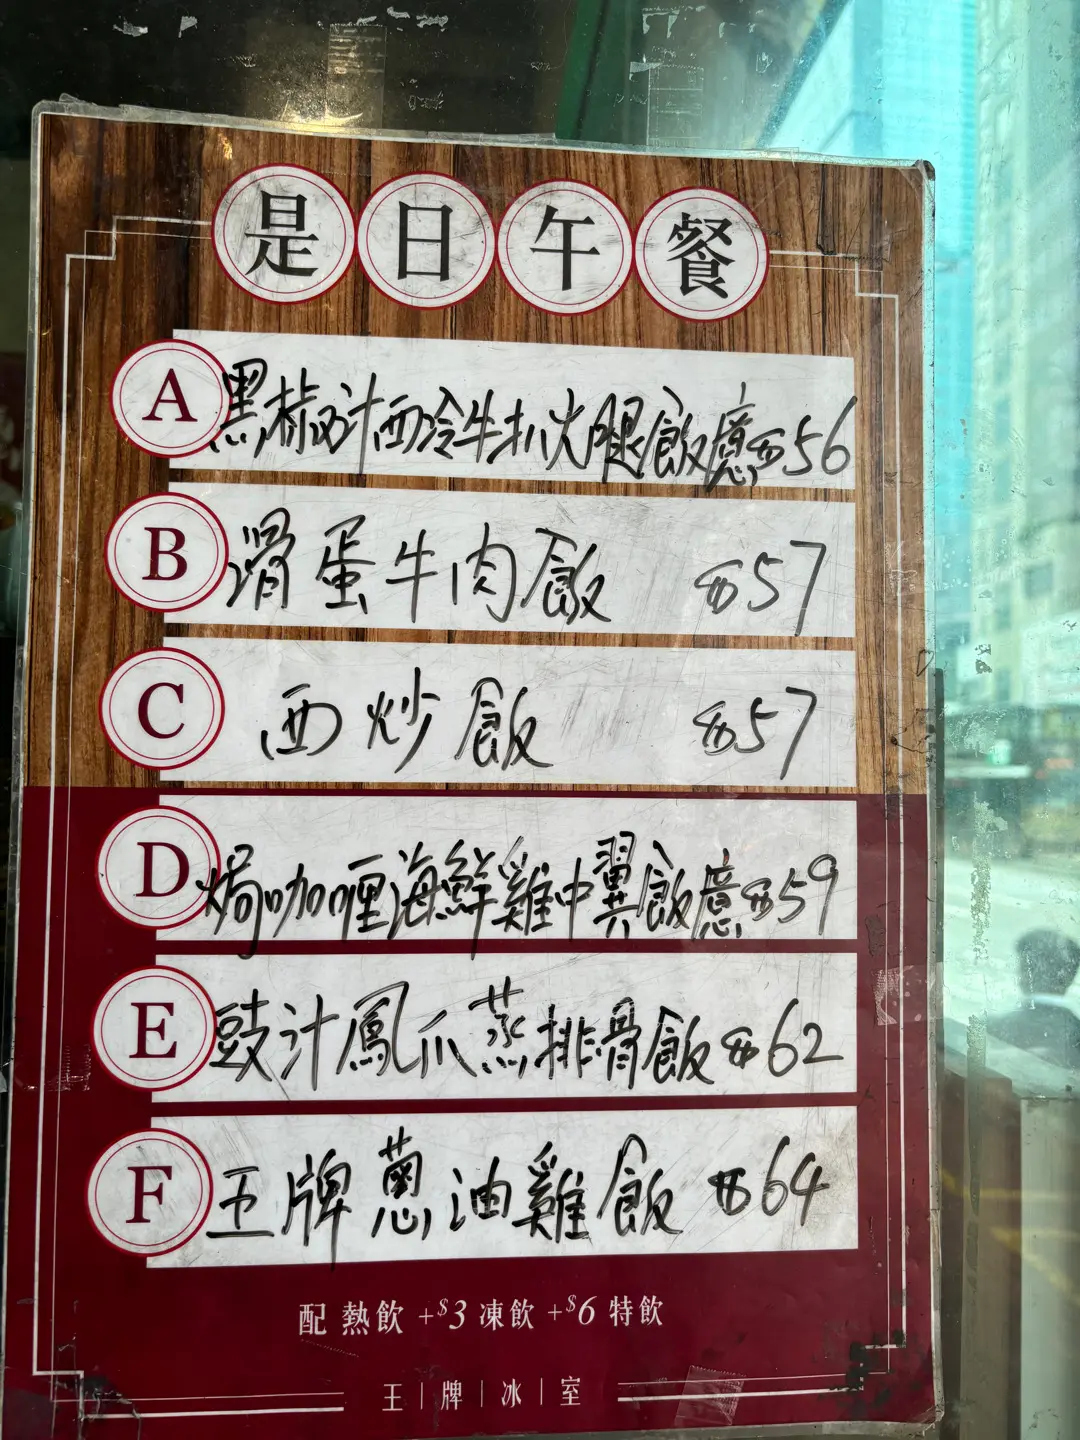 是日午餐
A 黑椒汁西冷牛扒火腿飯意$56
B 滑蛋牛肉飯 $57
C 西炒飯 $57
D 焗咖喱海鮮雞中翼飯意$59
E 豉汁鳳爪蒸排骨飯$62
F 王牌蔥油雞飯 $64
配熱飲 +$3 凍飲 +$6 特飲
王|牌|冰|室